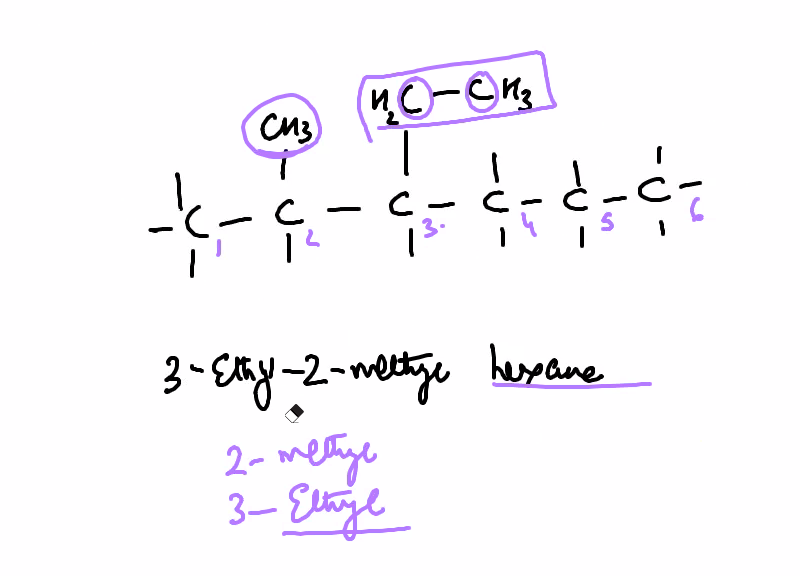 H₂C-CH3
CH3
C - C - C - C - C - C
1 2 3. 4 5 6
3-Ethyl-2-methyl hexane
2- methyl
3- Ethyl